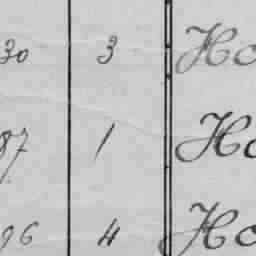 30 3 Ho
87 1 Ho
96 4 Ho